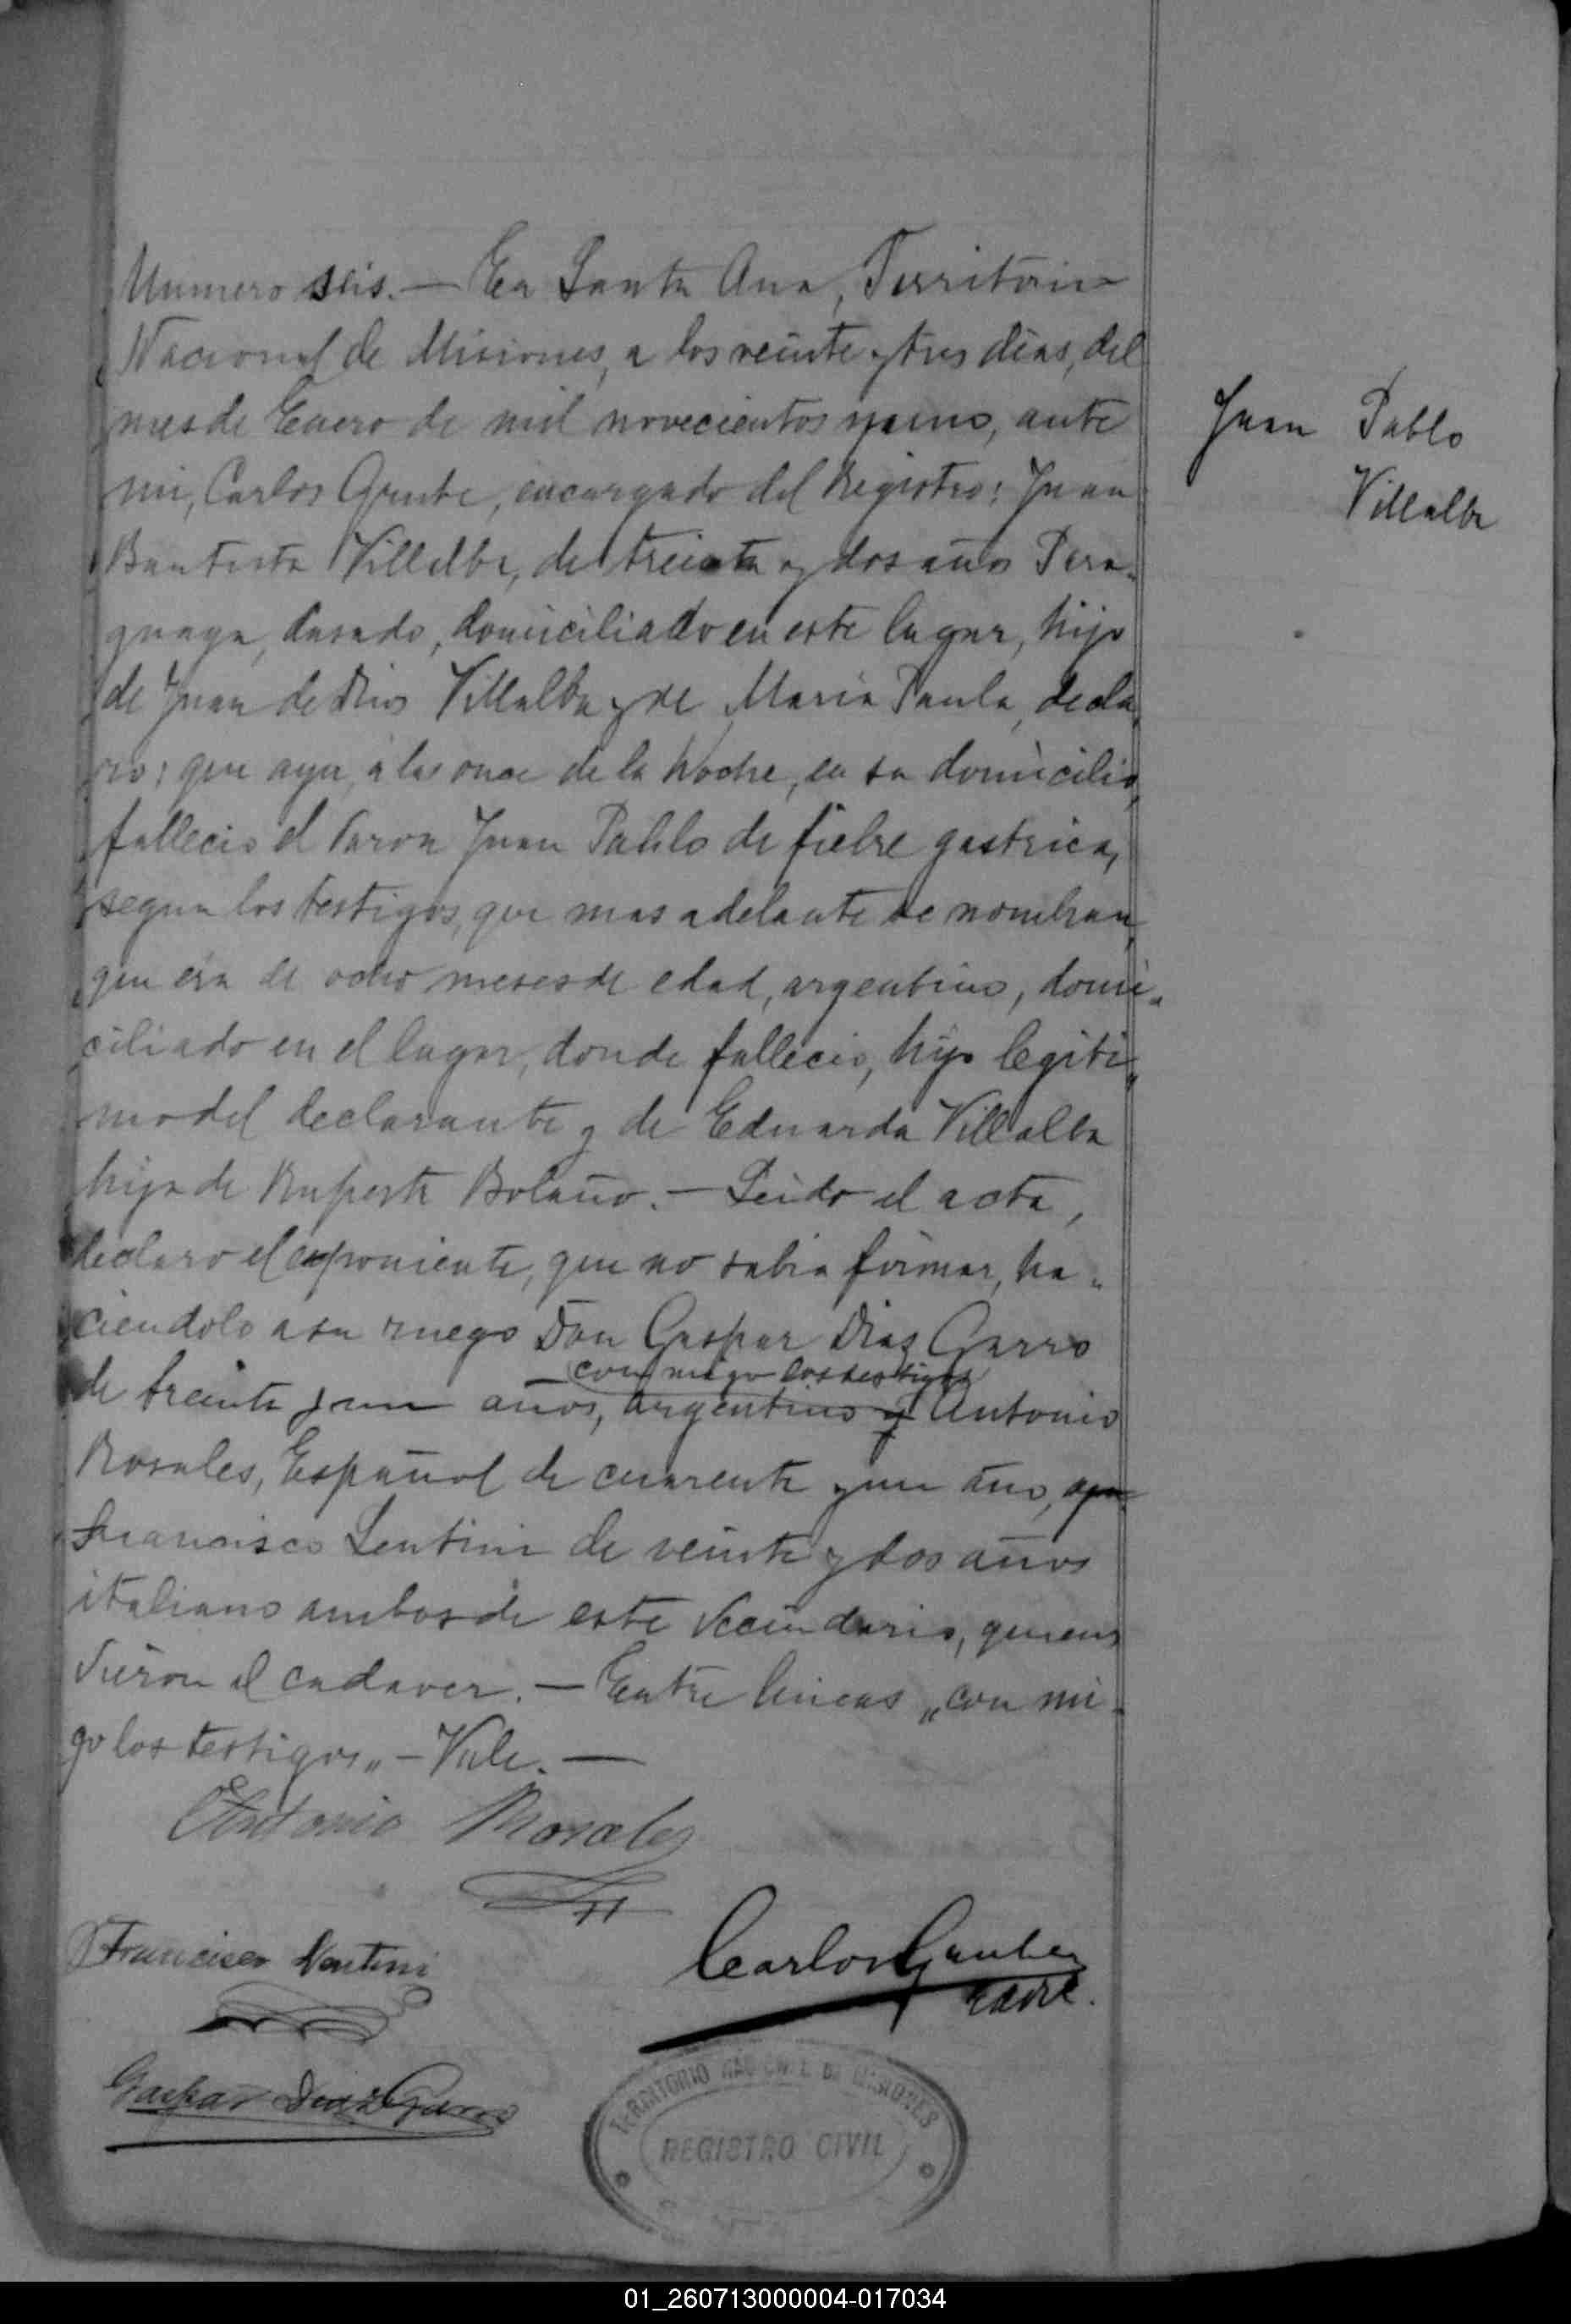 Numero seis. — En Santa Ana, Territorio
Nacional de Misiones, a los veinte y tres dias, del
mes de Enero de mil novecientos y uno, ante
mi, Carlos Grube, encargado del Registro: Juan
Bautista Villalba, de treinta y dos años Para-
guaya, casado, domiciliado en este lugar, hijo
de Juan de Dios Villalba y de Maria Paula, decla
ro: que ayer, a las once de la Noche, en su domicilio,
fallecio el varon Juan Pablo de fiebre gastrica,
segun los testigos, que mas adelante se nombran,
que era de ocho meses de edad, argentino, domi-
ciliado en el lugar, donde fallecio, hijo legiti-
mo del declarante y de Eduarda Villalba
hija de Ruperta Bolaño. — Leido el acta,
declaro el exponiente, que no sabia firmar, ha-
ciendolo a su ruego Don Gaspar Diaz Garro
con migo los testigos
de treinta y un años, argentino y Antonio
Rosales, Español de cuarenta y un año,
Francisco Lentini de veinte y dos años
italiano ambos de este Vecindario, quienes
vieron el cadaver. — Entre lineas „con mi-
go los testigos„ — Vale. —
Antonio Rosales
Francisco Lentini
Carlos
Gaspar Diaz Garro
TERRITORIO NACIONAL DE MISIONES
REGISTRO CIVIL
Juan Pablo
Villalba
01_260713000004-017034